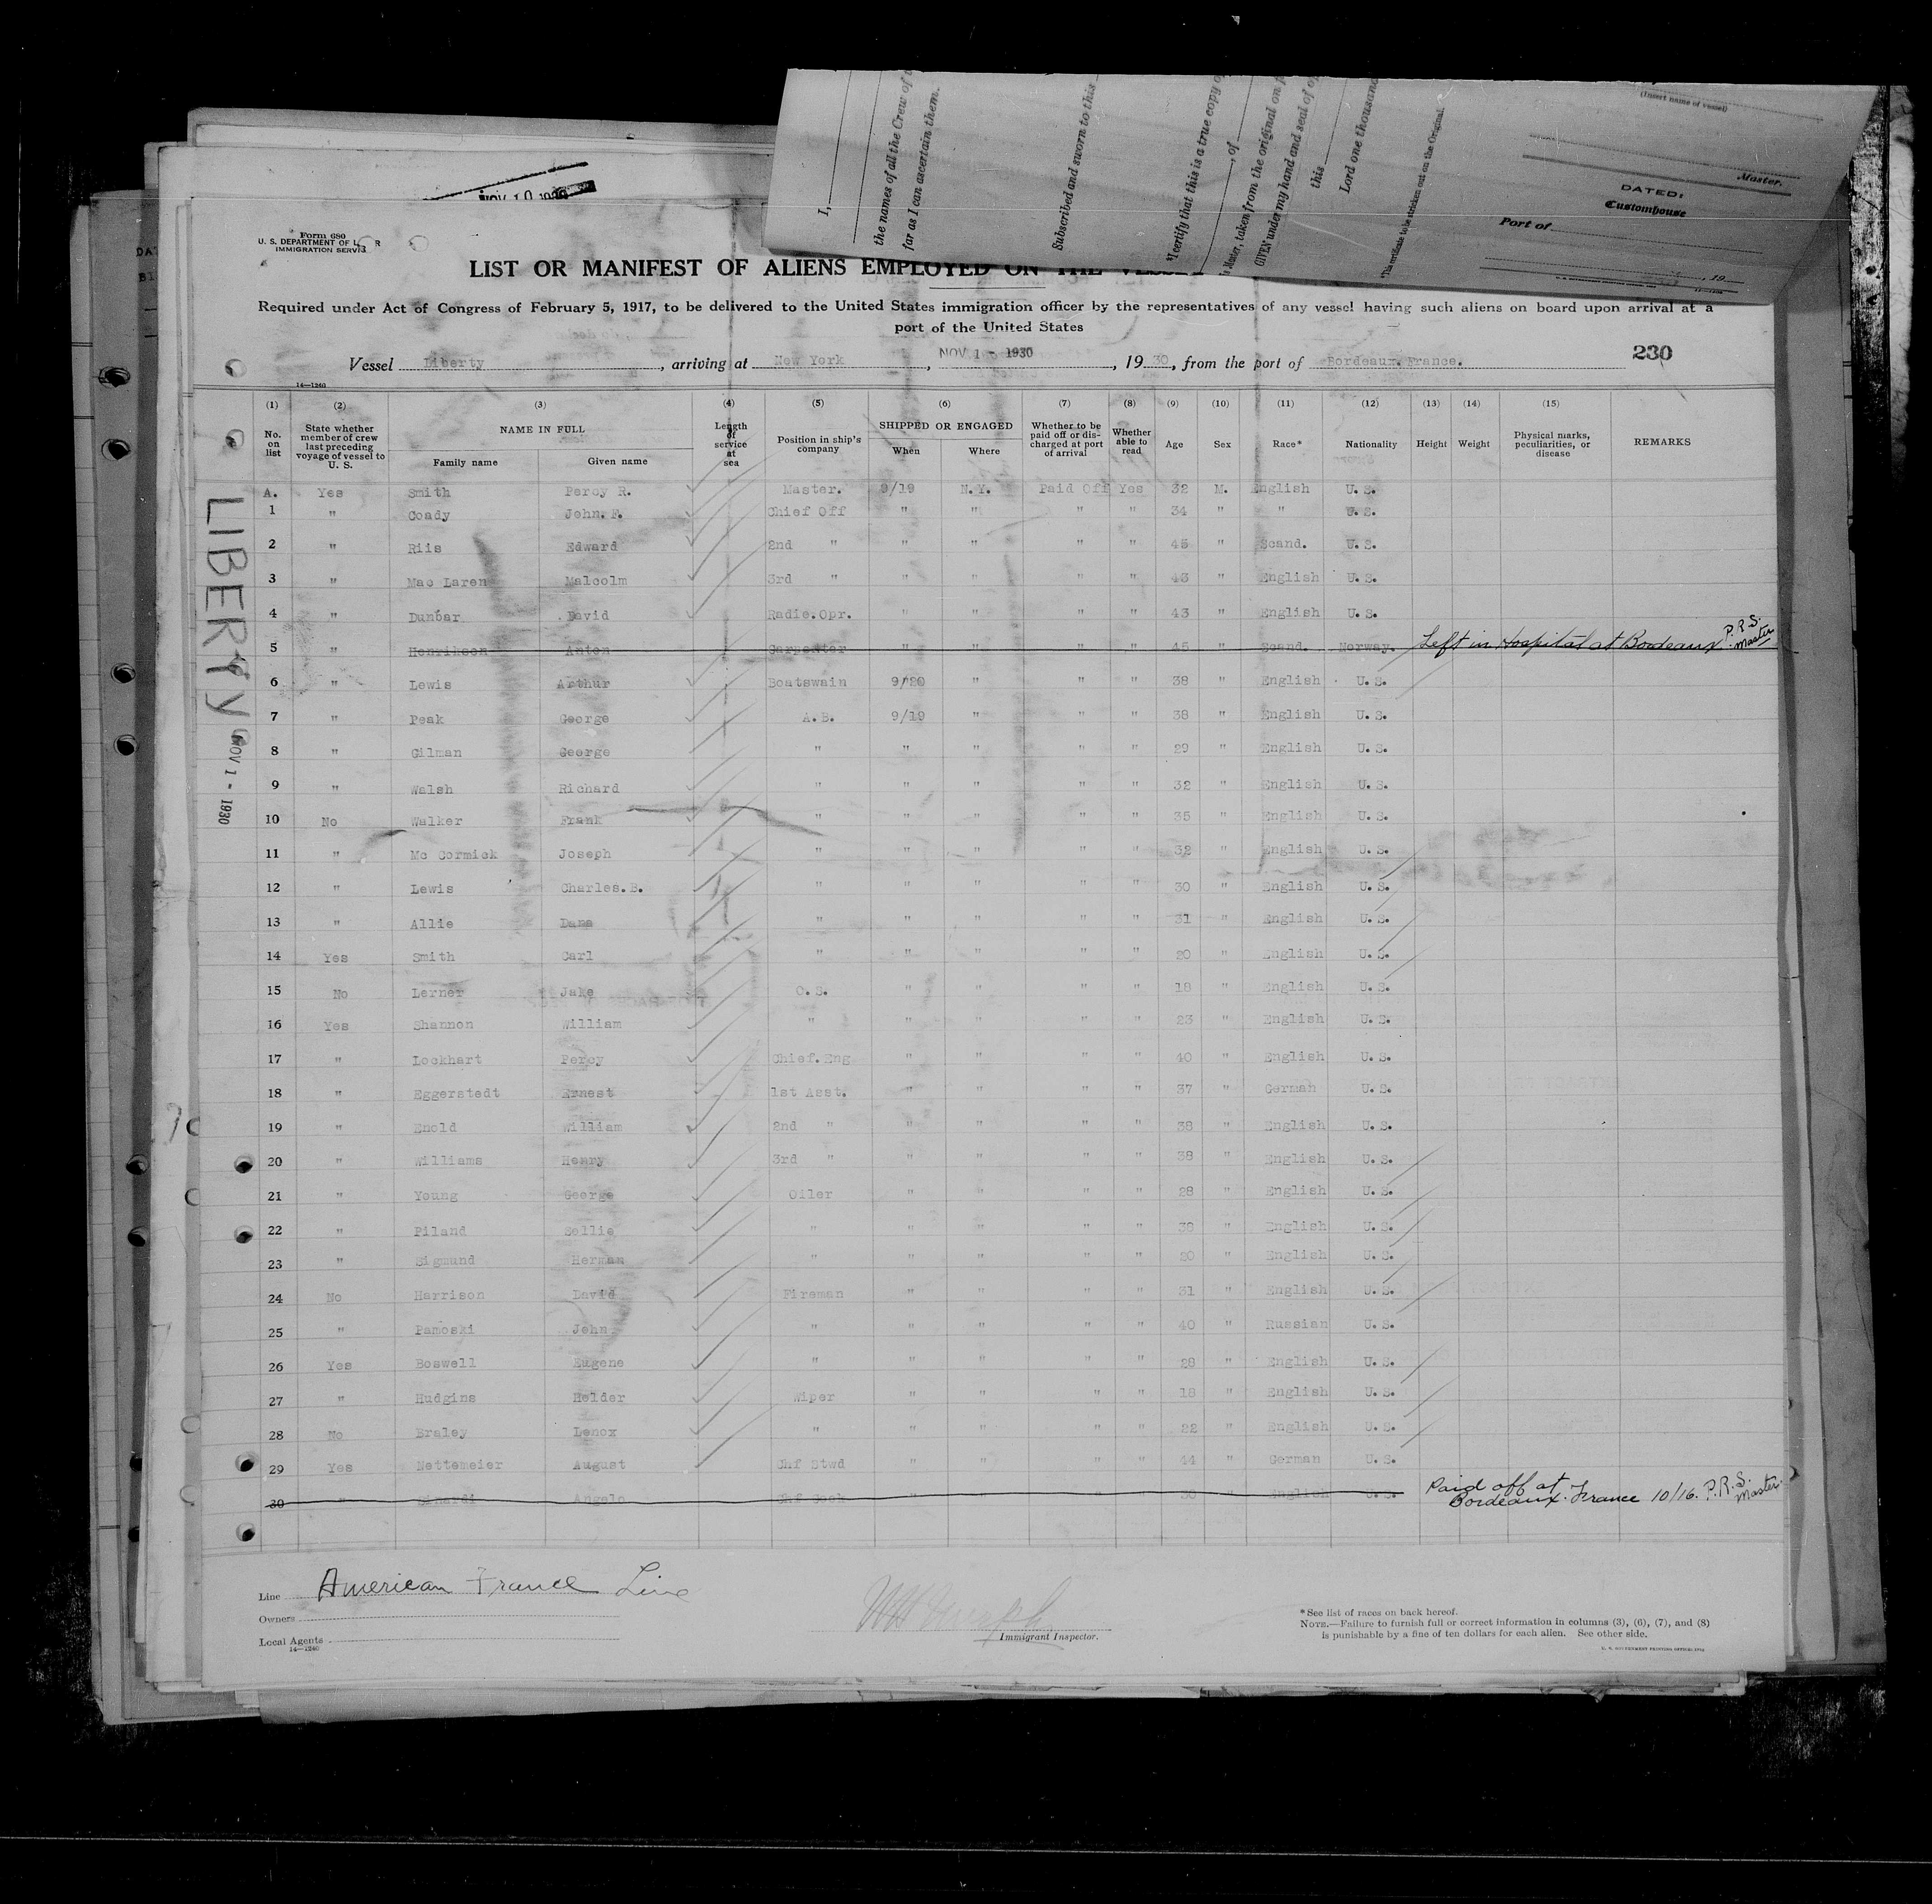 I,
the names of all the Crew of
far as I can ascertain them.
Subscribed and sworn to this
*I certify that this is a true copy
, of
Master, taken from the original on
GIVEN under my hand and seal of
this
Lord one thousand
*This certificate to be stricken out on the Original.
(Insert name of vessel)
Master.
DATED:
Customhouse
Port of
, 19
NOV 10 1930
Form 680
U. S. DEPARTMENT OF L R
IMMIGRATION SERVI
LIST OR MANIFEST OF ALIENS EMPLOYED ON THE VESSEL
Required under Act of Congress of February 5, 1917, to be delivered to the United States immigration officer by the representatives of any vessel having such aliens on board upon arrival at a
port of the United States
Vessel Liberty, arriving at New York, NOV 1 - 1930, 1930, from the port of Bordeaux.France. 230
14—1240
(1) (2) (3) (4) (5) (6) (7) (8) (9) (10) (11) (12) (13) (14) (15)
No. on list State whether member of crew last preceding voyage of vessel to U. S. NAME IN FULL Family name Given name Length of service at sea Position in ship's company SHIPPED OR ENGAGED When Where Whether to be paid off or discharged at port of arrival Whether able to read Age Sex Race* Nationality Height Weight Physical marks, peculiarities, or disease REMARKS
LIBERTY
NOV 1 - 1930
A. Yes Smith Percy R. Master. 9/19 N.Y. Paid Off Yes 32 M. English U. S.
1 " Coady John. F. Chief Off " " " " 34 " " U. S.
2 " Riis Edward 2nd " " " " " 45 " Scand. U. S.
3 " Mac Laren Malcolm 3rd " " " " " 43 " English U. S.
4 " Dunbar David Radio.Opr. " " " " 43 " English U. S.
5 " Henrikson Anton Carpenter " " " " 45 " Scand. Norway. Left in Hospital at Bordeaux P.R.S. Master
6 " Lewis Arthur Boatswain 9/20 " " " 38 " English U. S.
7 " Peak George A.B. 9/19 " " " 38 " English U. S.
8 " Gilman George " " " " " 29 " English U. S.
9 " Walsh Richard " " " " " 32 " English U. S.
10 No Walker Frank " " " " " 35 " English U. S.
11 " Mc Cormick Joseph " " " " " 32 " English U. S.
12 " Lewis Charles.B. " " " " " 30 " English U. S.
13 " Allie Dana " " " " " 31 " English U. S.
14 Yes Smith Carl " " " " " 20 " English U. S.
15 No Lerner Jake O. S. " " " " 18 " English U. S.
16 Yes Shannon William " " " " " 23 " English U. S.
17 " Lockhart Percy Chief.Eng " " " " 40 " English U. S.
18 " Eggerstedt Ernest 1st Asst. " " " " 37 " German U. S.
19 " Enold William 2nd " " " " " 38 " English U. S.
20 " Williams Henry 3rd " " " " " 38 " English U. S.
21 " Young George Oiler " " " " 28 " English U. S.
22 " Piland Zellie " " " " " 38 " English U. S.
23 " Sigmund Herman " " " " " 20 " English U. S.
24 No Harrison David Fireman " " " " 31 " English U. S.
25 " Pamoski John " " " " " 40 " Russian U. S.
26 Yes Boswell Eugene " " " " " 28 " English U. S.
27 " Hudgins Helder Wiper " " " " 18 " English U. S.
28 No Braley Lenox " " " " " 22 " English U. S.
29 Yes Nettemeier August Chf Stwd " " " " 44 " German U. S.
30 " Angelo Chf Cook " " " " " English U. S. Paid off at Bordeaux. France 10/16. P.R.S. Master.
Line American France Line
Owners
Local Agents
14—1240
Immigrant Inspector.
*See list of races on back hereof.
NOTE.—Failure to furnish full or correct information in columns (3), (6), (7), and (8)
is punishable by a fine of ten dollars for each alien. See other side.